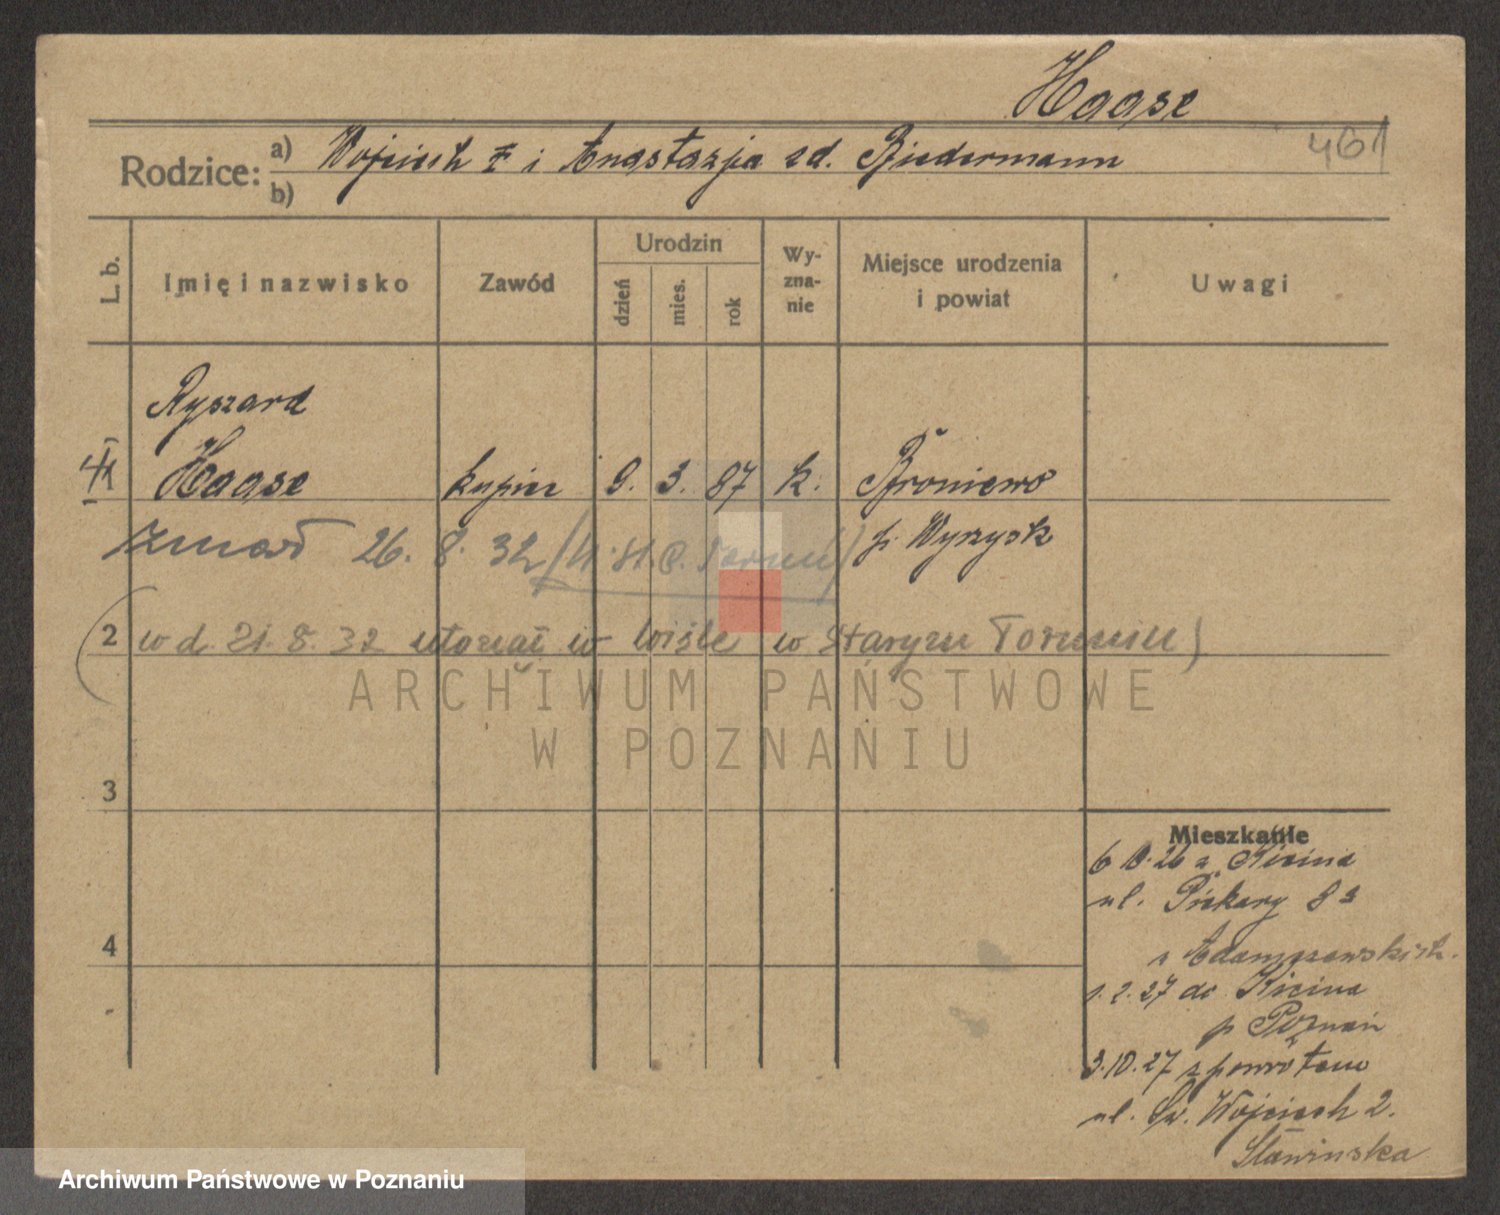 Haase
461
Rodzice: a) Wojciech † i Anastazja zd. Biedermann
b)
L. b.
Imię i nazwisko
Zawód
Urodzin
dzień
mies.
rok
Wy-
zna-
nie
Miejsce urodzenia
i powiat
Uwagi
Ryszard
Haase kupiec 9. 3. 87 k. Broniewo
p. Wyrzysk
zmarł 26. 8. 32 (U. St. C. Toruń)
2 w d. 21. 8. 32 utonął w Wiśle w Starym Toruniu)
ARCHIWUM PAŃSTWOWE
W POZNANIU
3
4
Mieszkanie
6 10. 26 z Kicina
ul. Piekary 8
Adamczewskich.
1. 2. 27 do Kicina
p Poznań
3. 10. 27 z powrotem
ul. Św. Wojciech 2.
Sławinska
Archiwum Państwowe w Poznaniu